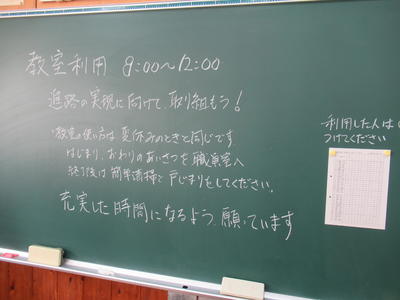 教室利用 9:00〜12:00
進路の実現に向けて、取り組もう!
・教室の使い方は 夏休みのときと同じです
はじまり、おわりのあいさつを 職員室へ
終了後は 簡単清掃で 戸じまりをしてください。
充実した時間になるよう、願っています
利用した人は
つけてください